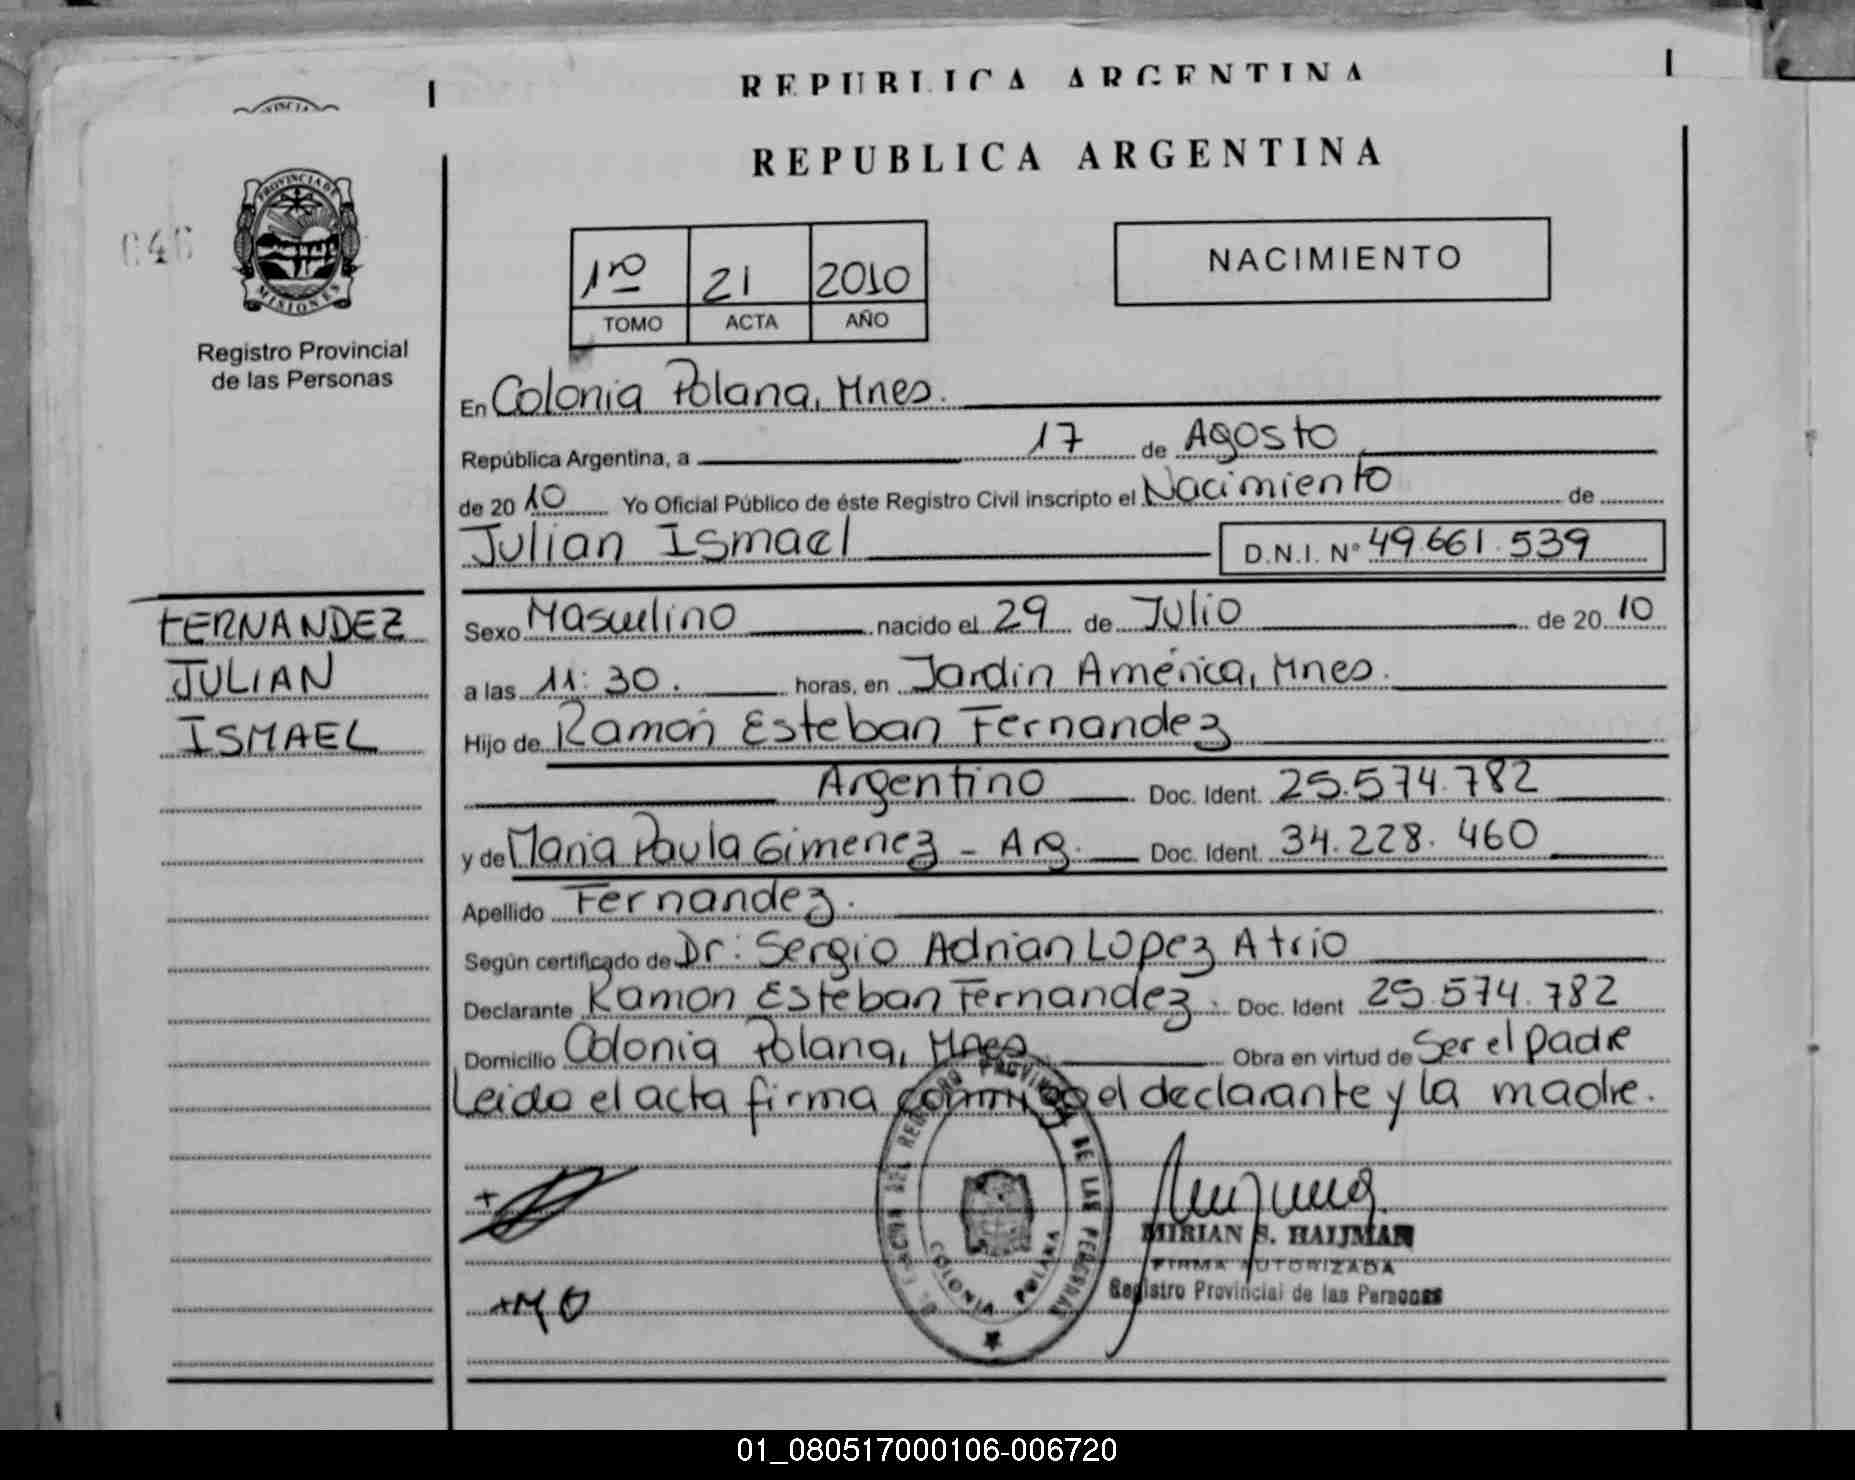 REPUBLICA ARGENTINA
REPUBLICA ARGENTINA
046
PROVINCIA DE
MISIONES
Registro Provincial
de las Personas
1ro 21 2010
TOMO ACTA AÑO
NACIMIENTO
En Colonia Polana, Mnes.
República Argentina, a 17 de Agosto
de 2010 Yo Oficial Público de éste Registro Civil inscripto el Nacimiento de
Julian Ismael D.N.I. Nº 49.661.539
FERNANDEZ
JULIAN
ISMAEL
Sexo Masculino nacido el 29 de Julio de 2010
a las 11:30. horas, en Jardin América, Mnes.
Hijo de Ramón Esteban Fernandez
Argentino Doc. Ident. 25.574.782
y de Maria Paula Gimenez - Arg. Doc. Ident. 34.228.460
Apellido Fernandez.
Según certificado de Dr: Sergio Adrian Lopez Atrio
Declarante Ramon Esteban Fernandez. Doc. Ident 25.574.782
Domicilio Colonia Polana, Mnes Obra en virtud de Ser el padre
Leido el acta firma conmigo el declarante y la madre.
DEL REGISTRO PROVINCIAL DE LAS PERSONAS
COLONIA POLANA
MIRIAN S. HAIJMAN
FIRMA AUTORIZADA
Registro Provincial de las Personas
01_080517000106-006720